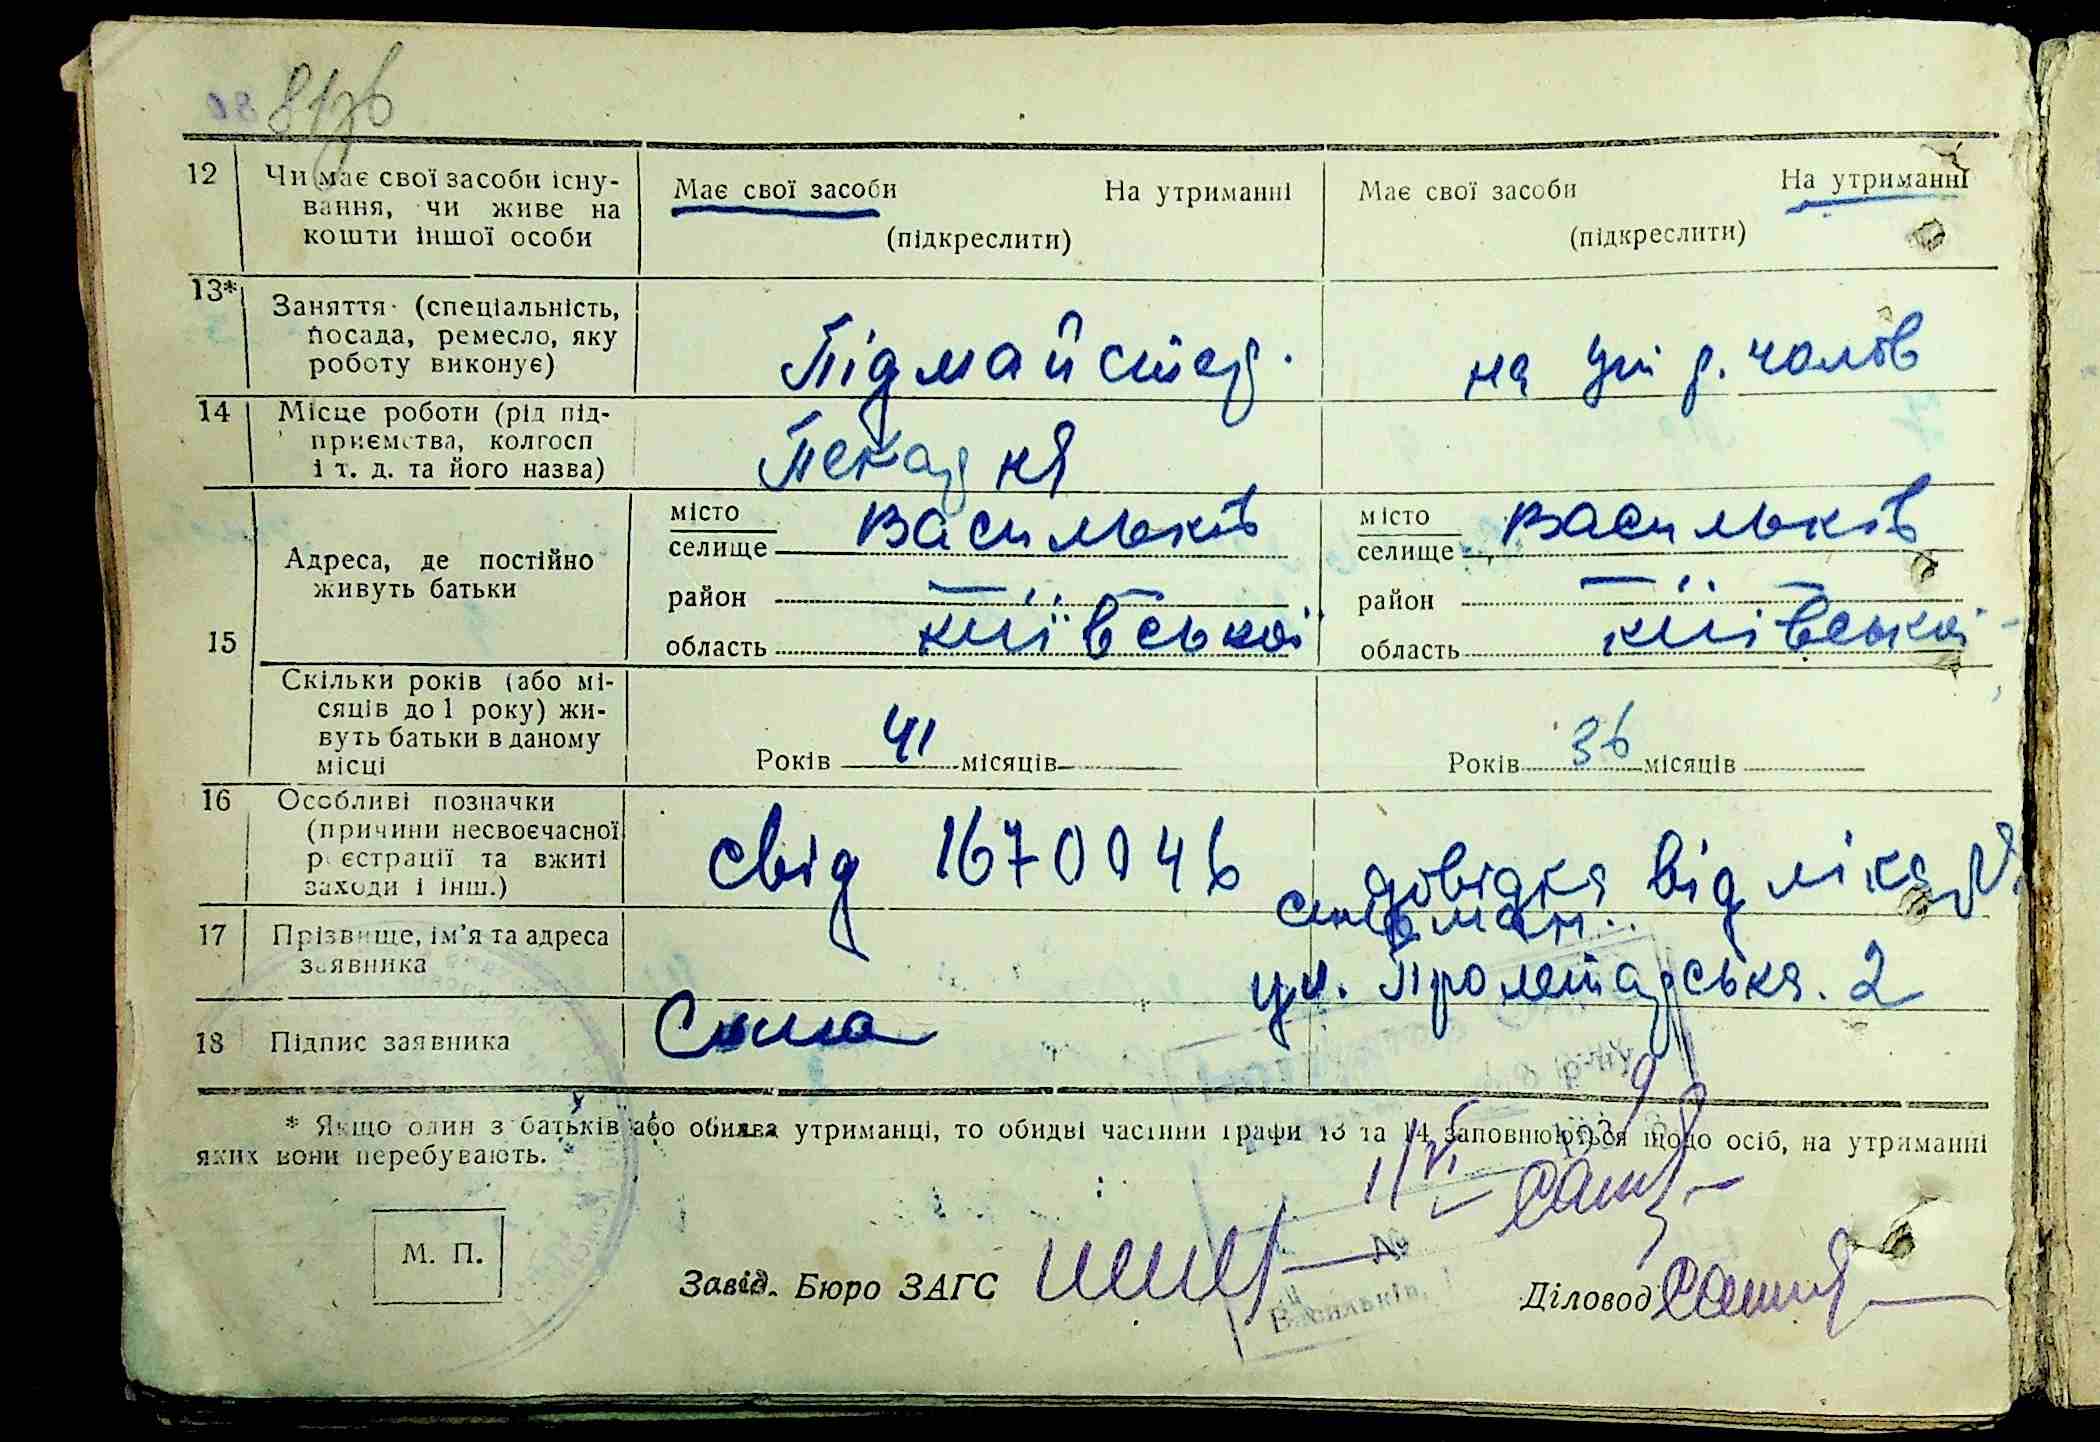 81зв
12 Чи має свої засоби існу-
вання, чи живе на
кошти іншої особи
Має свої засоби На утриманні
(підкреслити)
Має свої засоби На утриманні
(підкреслити)
13* Заняття (спеціальність,
посада, ремесло, яку
роботу виконує)
Підмайстер.
на ут р. чолов
14 Місце роботи (рід під-
приємства, колгосп
і т. д. та його назва)
Пекарня
15 Адреса, де постійно
живуть батьки
місто
селище Васильків
район —
область київської
місто
селище Васильків
район —
область київської
Скільки років (або мі-
сяців до 1 року) жи-
вуть батьки в даному
місці
Років 41 місяців
Років 36 місяців
16 Особливі позначки
(причини несвоєчасної
реєстрації та вжиті
заходи і інш.)
свід 1670046
довідка від лікаря
17 Прізвище, ім’я та адреса
заявника
ул. Пролетарська. 2
18 Підпис заявника
* Якщо один з батьків або обидва утриманці, то обидві частини графи 13 та 14 заповнюються щодо осіб, на утриманні
яких вони перебувають.
М. П.
Завід. Бюро ЗАГС
Діловод
№
Васильків